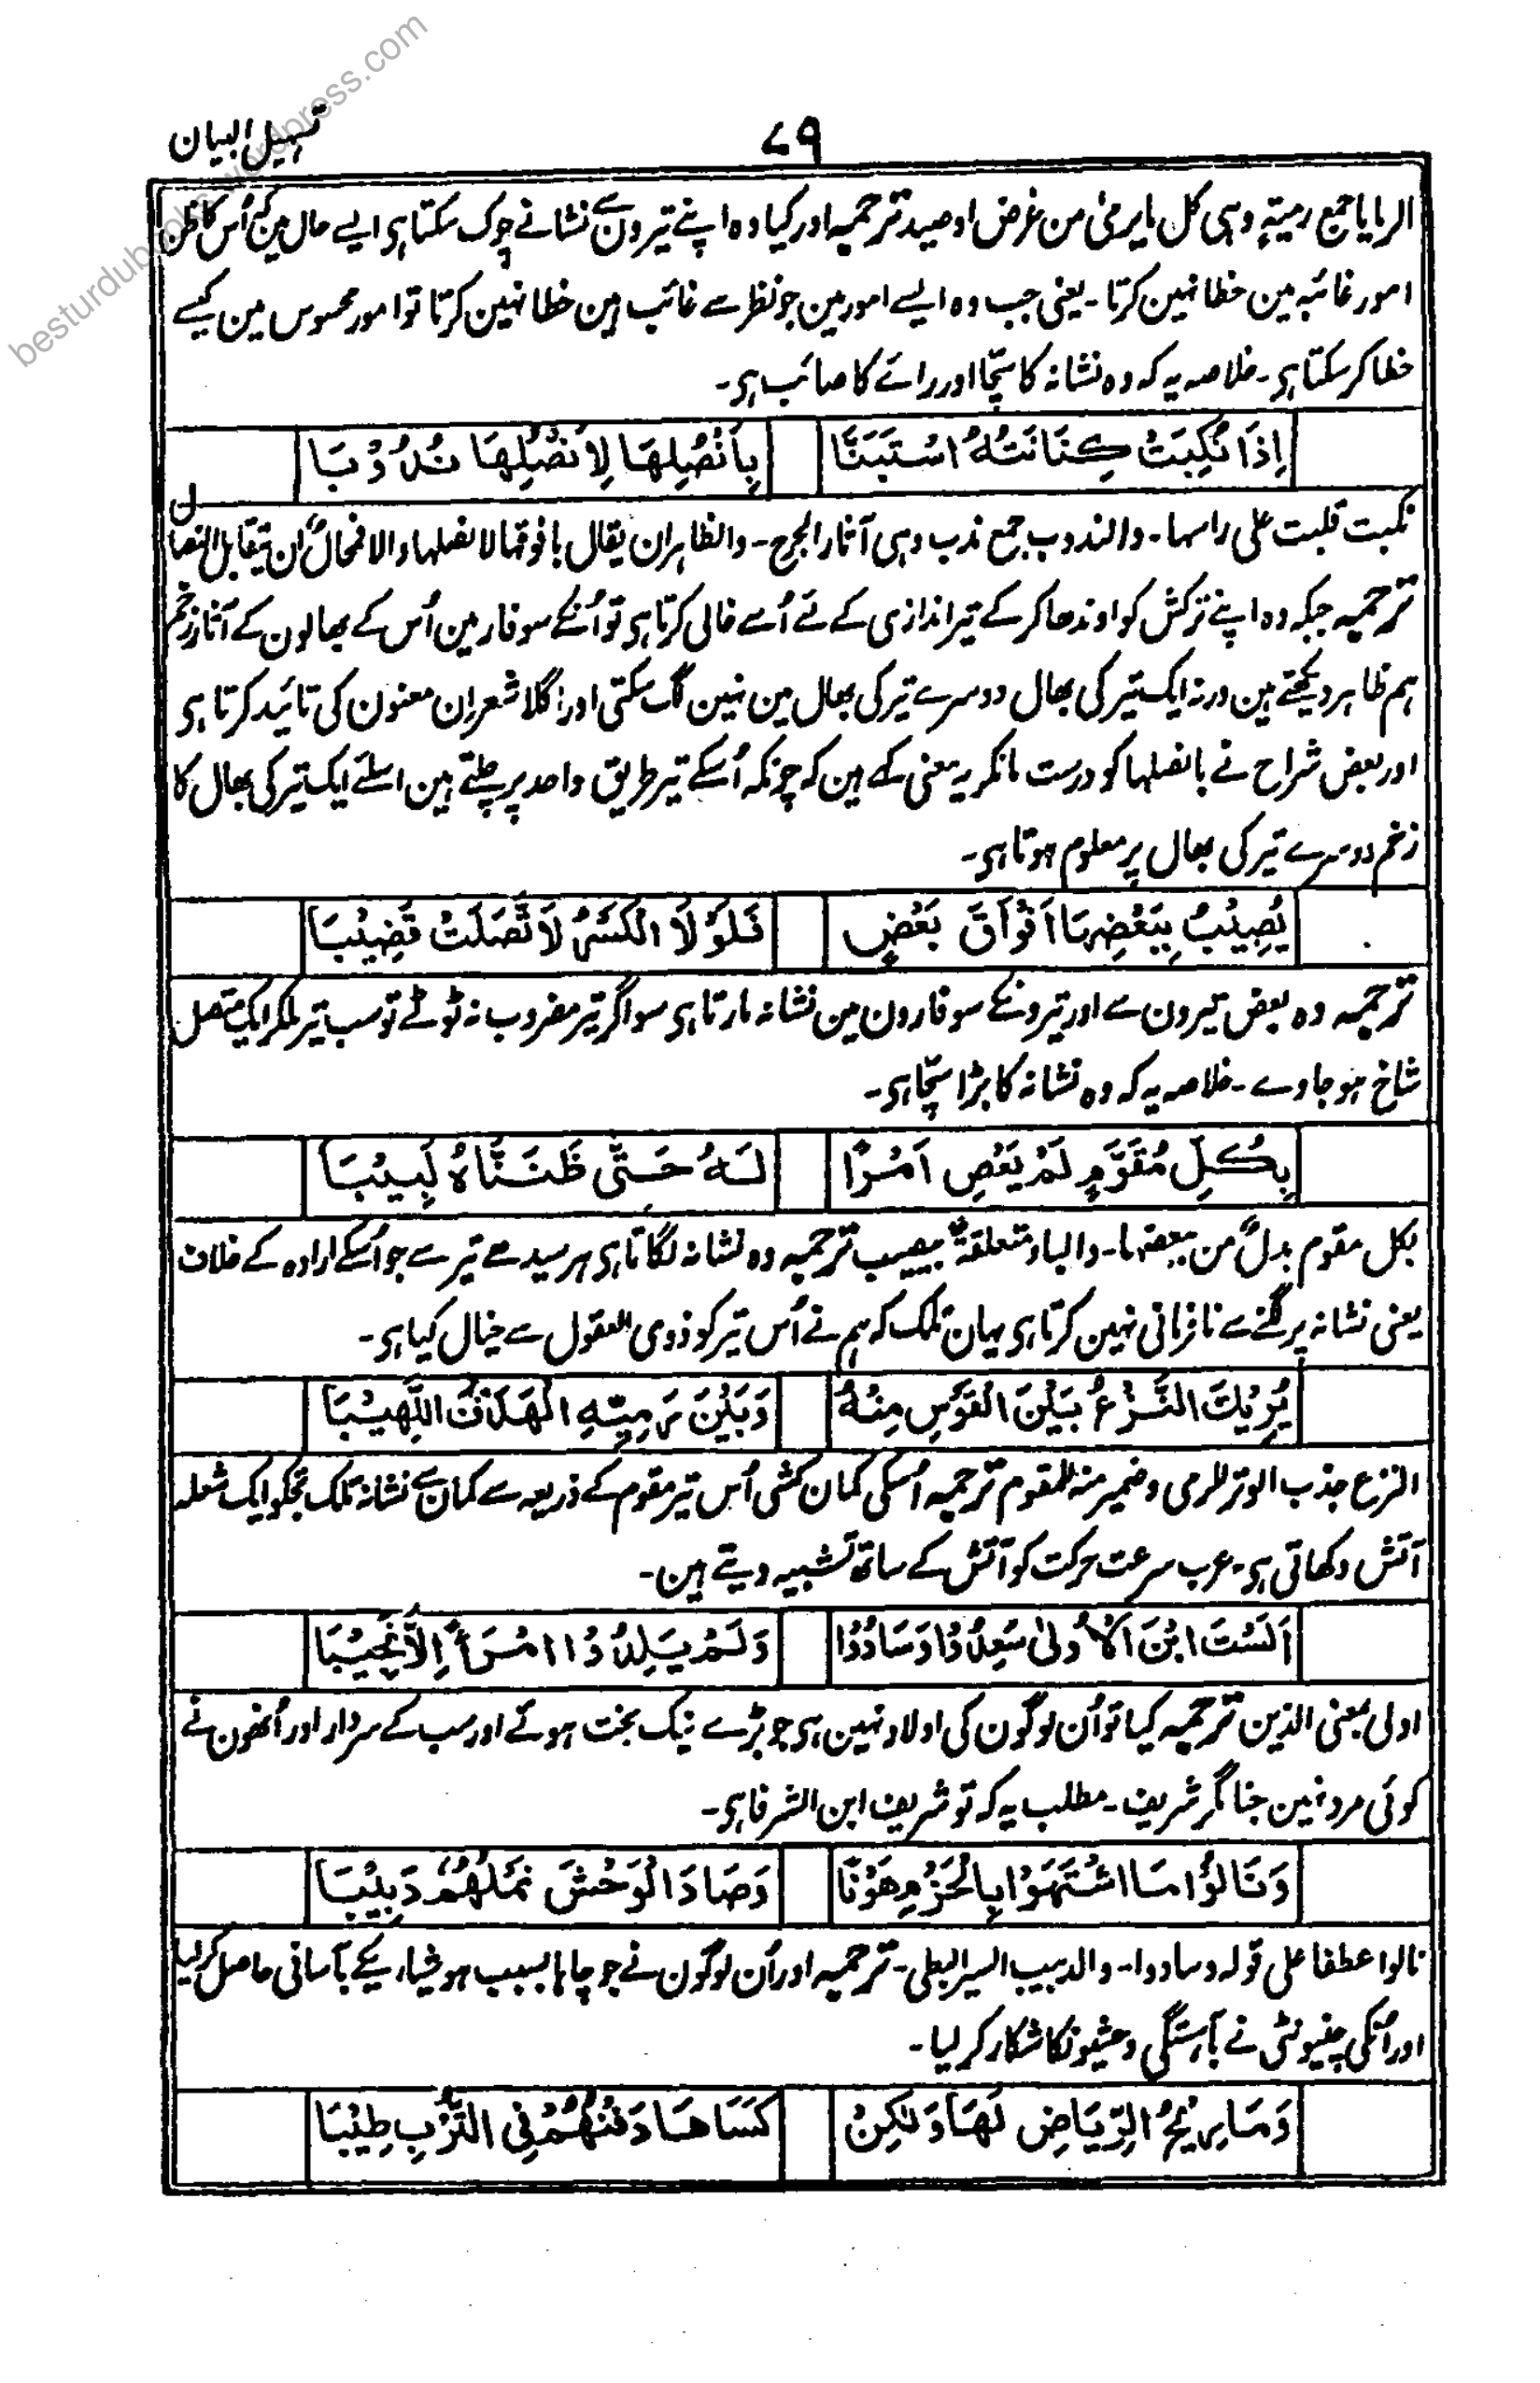 besturdubooks.wordpress.com
۷۹
تسہیل البیان
الرمایا جمع رمیتہٖ وہی کل مایرمیٰ من غرض اوصید ترجمہ اور کیا وہ اپنے تیرون سے نشانے چوک سکتا ہی ایسے حال مین کہ اُس کا ظن
امور غائبہ مین خطا نہین کرتا ۔ یعنی جب وہ ایسے امور مین جو نظر سے غائب ہین خطا نہین کرتا تو امور محسوس مین کیسے
خطا کر سکتا ہی ۔ خلاصہ یہ کہ وہ نشانہ کا سچّا اور رائے کا صائب ہی ۔
اِذَا نُكِبَتْ كِنَانَتُهُ اسْتَبَنَّا بِاَنْصُلِهَا لِاَنْصُلِهَا نُدُوْبَا
نکبت قلبت علی راسہا ۔ والندوب جمع ندب وہی آثار الجرح ۔ والظاہر ان یقال بافوقہا لانصلہا والا فمحالٌ ان یتقابل النصال
ترجمہ جبکہ وہ اپنے ترکش کو اوندھا کر کے تیر اندازی کے لئے اُسے خالی کرتا ہی تو اُنکے سوفار مین اُس کے بھالون کے آثار زخم
ہم ظاہر دیکھتے ہین ورنہ ایک تیر کی بھال دوسرے تیر کی بھال مین نہین لگ سکتی اور اگلا شعر ان معنون کی تائید کرتا ہی
اور بعض شراح نے بانصلہا کو درست مانکر یہ معنی کہے ہین کہ چونکہ اُسکے تیر طریق واحد پر چلتے ہین اسلئے ایک تیر کی بھال کا
زخم دوسرے تیر کی بھال پر معلوم ہوتا ہی ۔
يُصِيْبُ بِبَعْضِهَا اَفْوَاقَ بَعْضٍ فَلَوْلَا الْكَسْرُ لَاتَّصَلَتْ قَضِيْبَا
ترجمہ وہ بعض تیرون سے اور تیرونکے سوفارون مین نشانہ مارتا ہی سو اگر تیر مضروب نہ ٹوٹے تو سب تیر ملکر ایک متصل
شاخ ہو جاوے ۔ خلاصہ یہ کہ وہ نشانہ کا بڑا سچّا ہی ۔
بِكُلِّ مُقَوَّمٍ لَمْ يَعْصِ اَمْرًا لَهُ حَتّٰى ظَنَنَّاهُ لَبِيْبَا
بکل مقوم بدلٌ من ببعضہا ۔ والباء متعلقۃٌ بیصیب ترجمہ وہ نشانہ لگاتا ہی ہر سیدھے تیر سے جو اُسکے ارادہ کے خلاف
یعنی نشانہ پر لگنے سے نافرمانی نہین کرتا ہی یہان تلک کہ ہم نے اُس تیر کو ذوی العقول سے خیال کیا ہی ۔
يُرِيْكَ النَّزْعُ بَيْنَ الْقَوْسِ مِنْهُ وَبَيْنَ رَمِيِّهِ الْهَدَفَ اللَّهِيْبَا
النزع جذب الوتر للرمی وضمیر منہ للمقوم ترجمہ اُسکی کمان کشی اُس تیر مقوم کے ذریعہ سے کمان سے نشانہ تلک تجکو ایک شعلہ
آتش دکھاتی ہی ۔ عرب سرعت حرکت کو آتش کے ساتھ تشبیہ دیتے ہین ۔
اَلَسْتَ ابْنَ الْاُولٰى سَعِدُوْا وَسَادُوْا وَلَمْ يَلِدُوْا امْرَأً اِلَّا نَجِيْبَا
اولی بمعنی الذین ترجمہ کیا تو اُن لوگون کی اولاد نہین ہی جو بڑے نیک بخت ہوئے اور سب کے سردار اور اُنھون نے
کوئی مرد نہین جنا مگر شریف ۔ مطلب یہ کہ تو شریف ابن الشرفا ہی ۔
وَنَالُوْا مَا اشْتَهَوْا بِالْحَزْمِ هَوْنًا وَصَادَ الْوَحْشَ نَمْلُهُمْ دَبِيْبَا
نالوا عطفا علی قولہ وسادوا ۔ والدبیب السیر البطی ۔ ترجمہ اور اُن لوگون نے جو چاہا بسبب ہوشیاریکے بآسانی حاصل کر لیا
اور اُنکی چنیونٹی نے بآہستگی وحشیونکا شکار کر لیا ۔
وَمَا رِيْحُ الرِّيَاضِ لَهَا وَلٰكِنْ كَسَاهَا دَفْنُهُمْ فِي التُّرْبِ طِيْبَا